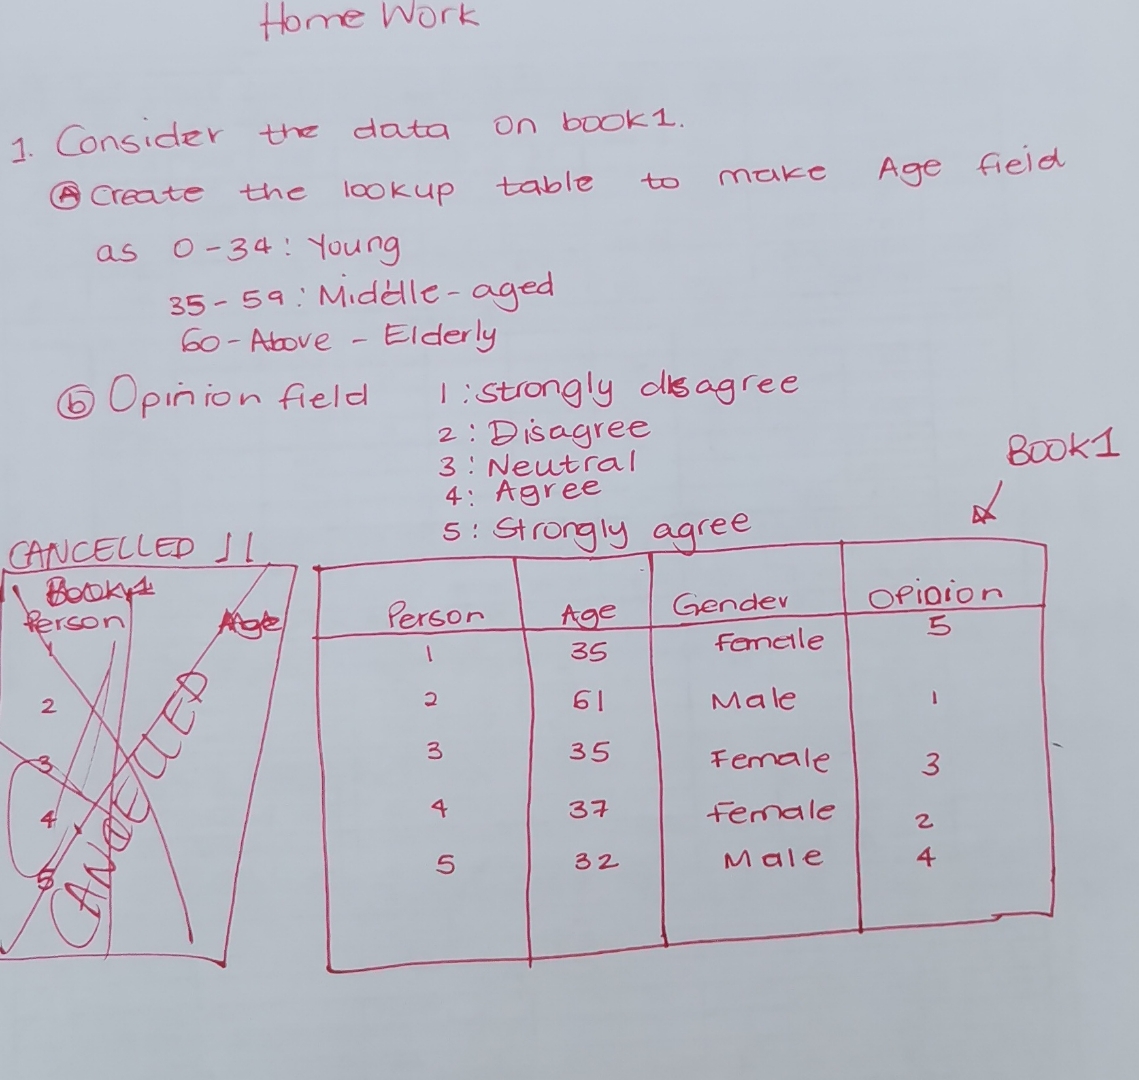 Home Work
1. Consider the data on book1.
(A) Create the lookup table to make Age field
as 0-34: Young
35-59: Middle-aged
60-Above - Elderly
(b) Opinion field 1: Strongly disagree
2: Disagree
3: Neutral
4: Agree
5: Strongly agree
BOOK1
CANCELLED !!
Book1
Person Age
1
2
3
4
5
CANCELLED
Person Age Gender Opinion
1 35 Female 5
2 61 Male 1
3 35 Female 3
4 37 Female 2
5 32 Male 4